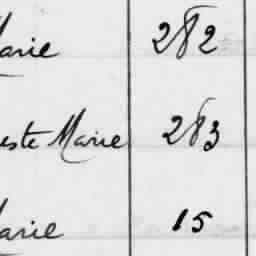 arie 282
este Marie 283
arie 15